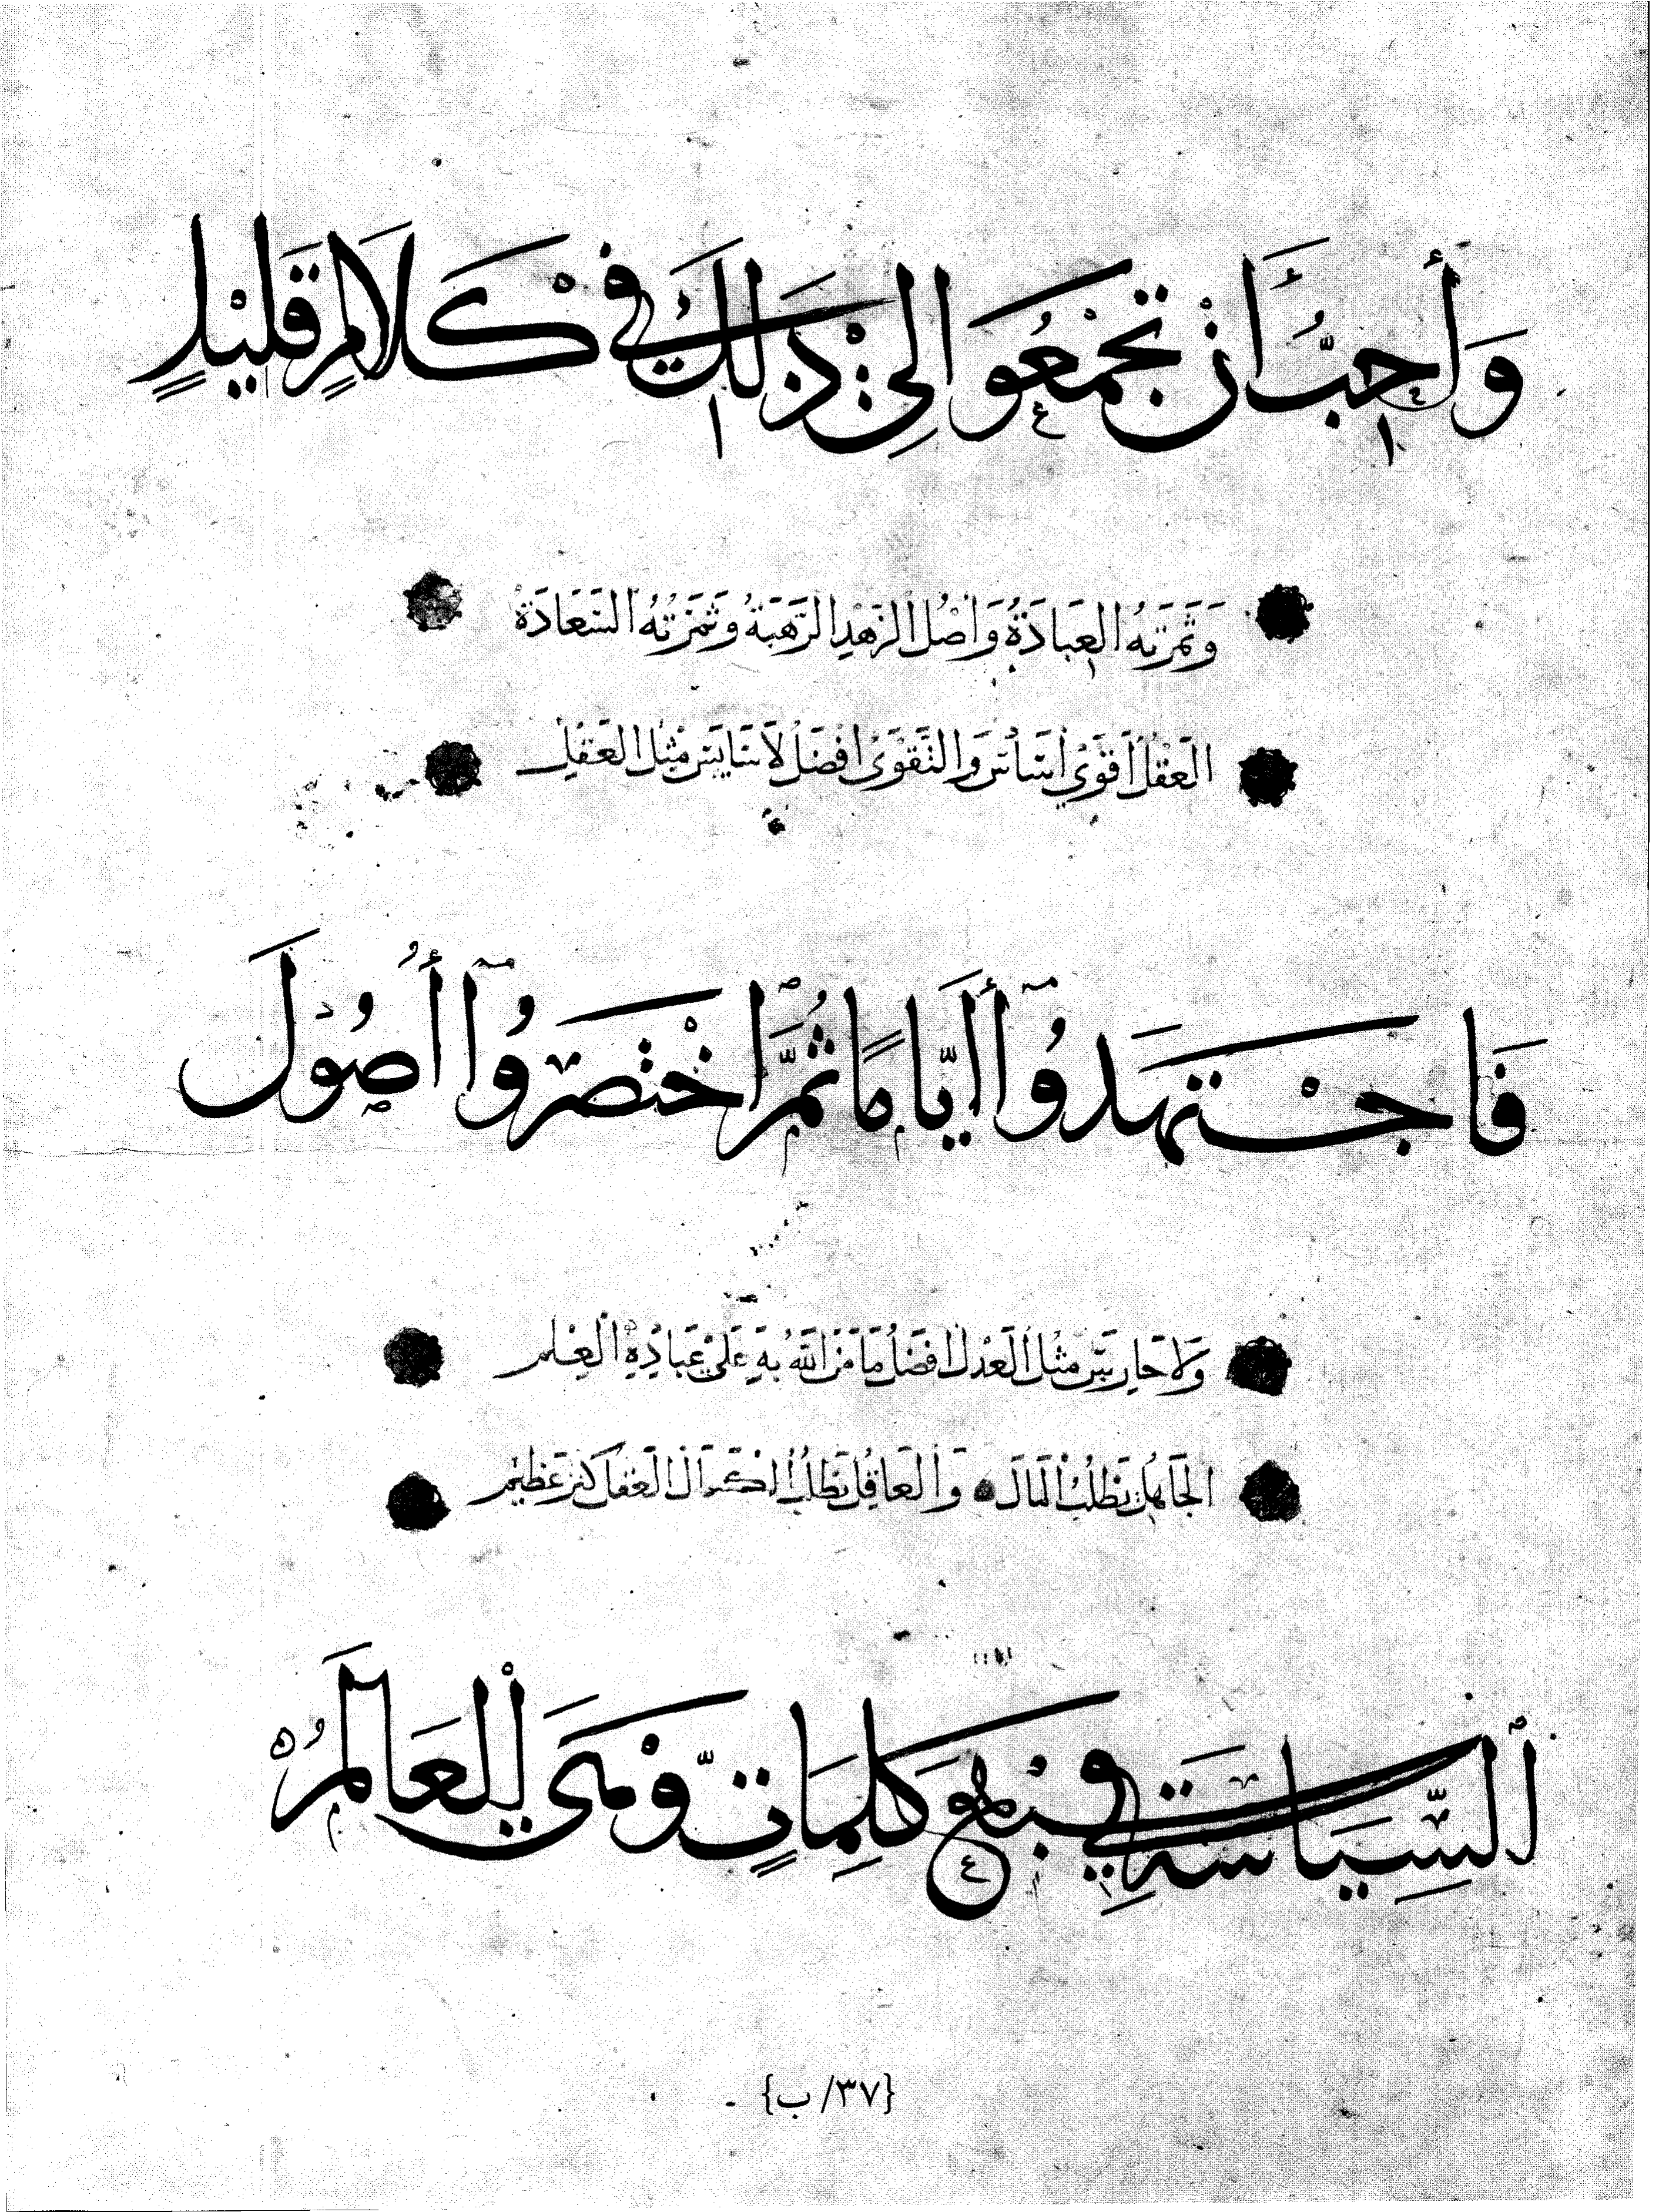 وَأُحِبُّ أَنْ تَجْمَعُوا لِي ذَلِكَ فِي كَلَامٍ قَلِيلٍ
وَثَمَرَتُهُ الْعِبَادَةُ وَأَصْلُ الزُّهْدِ الرَّهْبَةُ وَثَمَرَتُهُ السَّعَادَةُ
الْعَقْلُ أَقْوَى أَسَاسٍ وَالتَّقْوَى أَفْضَلُ لَا سَايِسَ مِثْلُ الْعَقْلِ
فَاجْتَهَدُوا أَيَّامًا ثُمَّ اخْتَصَرُوا أُصُولَ
وَلَا حَارِسَ مِثْلُ الْعَدْلِ أَفْضَلُ مَا مَنَّ اللَّهُ بِهِ عَلَى عِبَادِهِ الْعِلْمُ
الْجَاهِلُ يَطْلُبُ الْمَالَ وَالْعَاقِلُ يَطْلُبُ الْكَمَالَ الْعَقْلُ كَنْزٌ عَظِيمٌ
السِّيَاسَةِ فِي أَرْبَعِ كَلِمَاتٍ وَهِيَ الْعَالَمُ
{٣٧/ب}